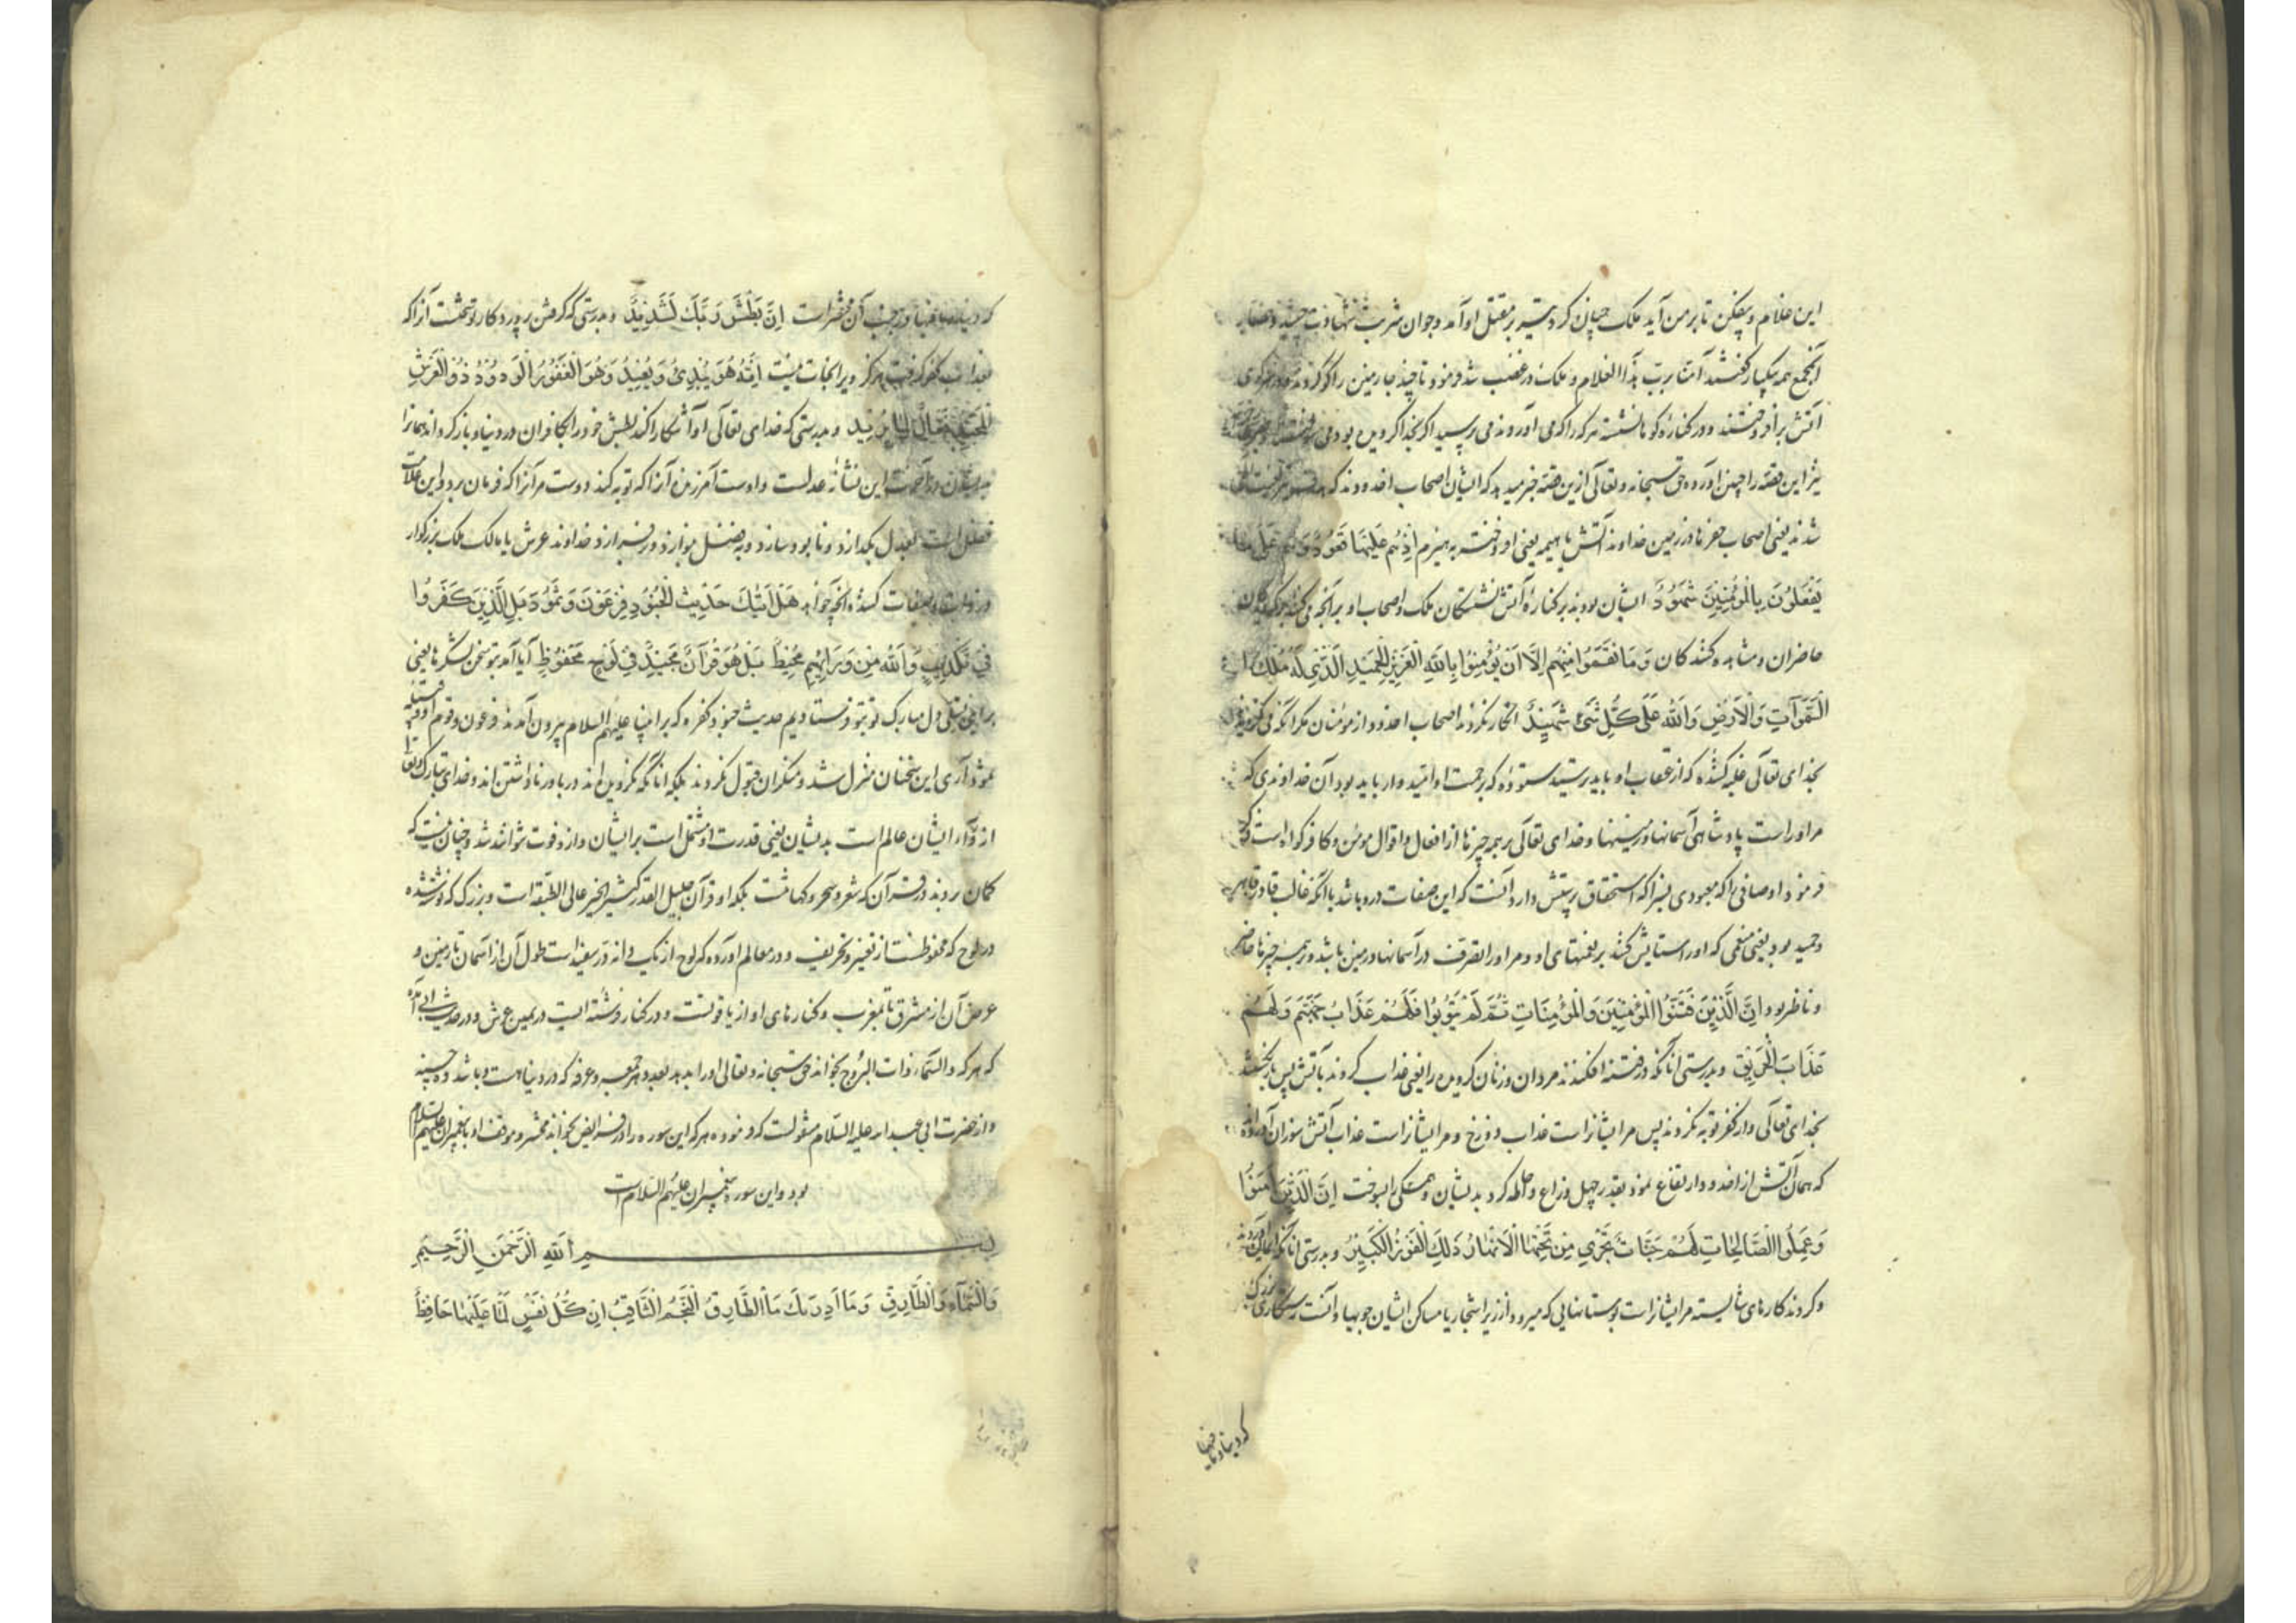 این غلام و بیفکن تا بر من آید ملک چنان کرد تیر بر مقتل او آمد و جوان شربت شهادت چشید
آنجمع همه بیکبار گفتند آمنا برب هذا الغلام و ملک در غضب شد فرمود تا چند جا زمین را گو کردند و در گوی
آتش برافروختند و در کنارهٔ گوها نشسته هر که را که می آوردند می پرسید اگر بخدا گرویده بود می
نیز این قصه را چنین آورده حق سبحانه و تعالی ازین قصه خبر میدهد که ایشان اصحاب اخدودند که
شدند یعنی اصحاب حفرها در زمین خداوند آتش با هیمه یعنی افروخته به هیزم اِذْهُم عَلَيْهَا قُعُودٌ وَهُمْ عَلَىٰ مَا
يَفْعَلُونَ بِالْمُؤْمِنِينَ شُهُودٌ ایشان بودند بر کنارهٔ آتش نشستگان ملک و اصحاب او بر آنچه می کنند
حاضران و مشاهده کنندگان وَمَا نَقَمُوا مِنْهُم اِلَّا اَنْ يُؤْمِنُوا بِاللّٰهِ الْعَزِيزِ الْحَمِيدِ الَّذِي لَهُ مُلْكُ
السَّمٰوَاتِ وَالْاَرْضِ وَاللّٰهُ عَلٰى كُلِّ شَيْءٍ شَهِيدٌ انکار نکردند اصحاب اخدود از مؤمنان مگر آنکه می گرویدند
بخدای تعالی غلبه کننده که از عقاب او باید ترسید ستوده که برحمت او امیدوار باید بود آن خداوندی که
مر اوراست پادشاهی آسمانها و زمینها و خدای تعالی بر همه چیزها از افعال و اقوال مؤمن و کافر گواه است
فرمود اوصافی را که معبودی بسزا که استحقاق پرستش دارد آنست که این صفات درو باشد با آنکه غالب قادر قاهر
و حمید بود یعنی منعمی که او را ستایش کنند بر نعمتهای او و مر او را تصرف در آسمانها و زمین باشد و بر همه چیزها حاضر
و ناظر بود اِنَّ الَّذِينَ فَتَنُوا الْمُؤْمِنِينَ وَالْمُؤْمِنَاتِ ثُمَّ لَمْ يَتُوبُوا فَلَهُمْ عَذَابُ جَهَنَّمَ وَلَهُمْ
عَذَابُ الْحَرِيقِ و بدرستی آنانکه در فتنه افکندند مردان و زنان گرویده را یعنی عذاب کردند بآتش پس
بخدای تعالی و از کفر توبه نکردند پس مر ایشانراست عذاب دوزخ و مر ایشانراست عذاب آتش سوزان آورده
که همان آتش از اخدود ارتفاع نمود بقدر چهل ذراع و احاطه کرد بدیشان و همگی را بسوخت اِنَّ الَّذِينَ اٰمَنُوا
وَعَمِلُوا الصَّالِحَاتِ لَهُمْ جَنَّاتٌ تَجْرِي مِنْ تَحْتِهَا الْاَنْهَارُ ذٰلِكَ الْفَوْزُ الْكَبِيرُ و بدرستی آنانکه ایمان
و کردند کارهای شایسته مر ایشانراست بوستانهایی که میرود از زیر اشجار یا مساکن ایشان جویها و آنست رستگاری بزرگ
که دنیا و مافیها
که دنیا و مافیها در جنب آن محقر است اِنَّ بَطْشَ رَبِّكَ لَشَدِيدٌ و بدرستی که گرفتن پروردگار تو سخت آنرا که
بعذاب گیرد هرگز ویرا نجات نیست اِنَّهُ هُوَ يُبْدِئُ وَيُعِيدُ وَهُوَ الْغَفُورُ الْوَدُودُ ذُو الْعَرْشِ
الْمَجِيدُ فَعَّالٌ لِمَا يُرِيدُ و بدرستی که خدای تعالی او آشکارا کند بطش خود را بکافران در دنیا و باز گرداند همانرا
بدیشان در آخرت این نشانهٔ عدلست و اوست آمرزنده آنرا که توبه کند دوست مر آنرا که فرمان برد و این علامت
فضل است بعدل بگدازد و نابود سازد و بفضل بنوازد و برافرازد خداوند عرش یا مالک ملک بزرگوار
در ذات و صفات کننده آنچه خواهد هَلْ اَتٰيكَ حَدِيثُ الْجُنُودِ فِرْعَوْنَ وَثَمُودَ بَلِ الَّذِينَ كَفَرُوا
فِي تَكْذِيبٍ وَاللّٰهُ مِنْ وَرَائِهِمْ مُحِيطٌ بَلْ هُوَ قُرْاٰنٌ مَجِيدٌ فِي لَوْحٍ مَحْفُوظٍ آیا آمد بتو سخن لشکرها یعنی
برای تسلی دل مبارک تو بتو فرستادیم حدیث جنود کفره که بر انبیا علیهم السلام بیرون آمدند فرعون و قوم او و قبیله
ثمود آری این سخنان منزل شد و منکران قبول نکردند بلکه آنانکه نگرویده اند در باور ناداشتن اند و خدای تبارک و تعالی
از وراء ایشان عالم است بدیشان یعنی قدرت او مشتمل است بر ایشان و ازو فوت نتوانند شد و چنان نیست که
گمان بردند در قرآن که شعر و سحر و کهانت بلکه او قرآن جلیل القدر کثیر الخیر عالی الطبقه است و بزرگ که نوشته شده
در لوح که محفوظست از تغییر و تحریف و در معالم آورده که لوح از یک دانه در سفید است طول آن از آسمان تا زمین و
عرض آن از مشرق تا بمغرب و کنارهای او از یاقوتست و در کنار فرشته ایست در یمین عرش و در حدیث ابی آمده
که هر که والسماء ذات البروج بخواند حق سبحانه و تعالی او را بدهد بعدد هر جمعه و عرفه که در دنیا هست و باشد ده حسنه
و از حضرت ابی عبد الله علیه السلام منقولست که فرموده هر که این سوره را در فرایض بخواند محشر و موقف او با پیغمبران علیهم السلام
بود و این سورهٔ پیغمبران علیهم السلام است
بسم اللّٰهِ الرَّحْمٰنِ الرَّحِيمِ
وَالسَّمَاءِ وَالطَّارِقِ وَمَا اَدْرٰيكَ مَا الطَّارِقُ النَّجْمُ الثَّاقِبُ اِنْ كُلُّ نَفْسٍ لَمَّا عَلَيْهَا حَافِظٌ